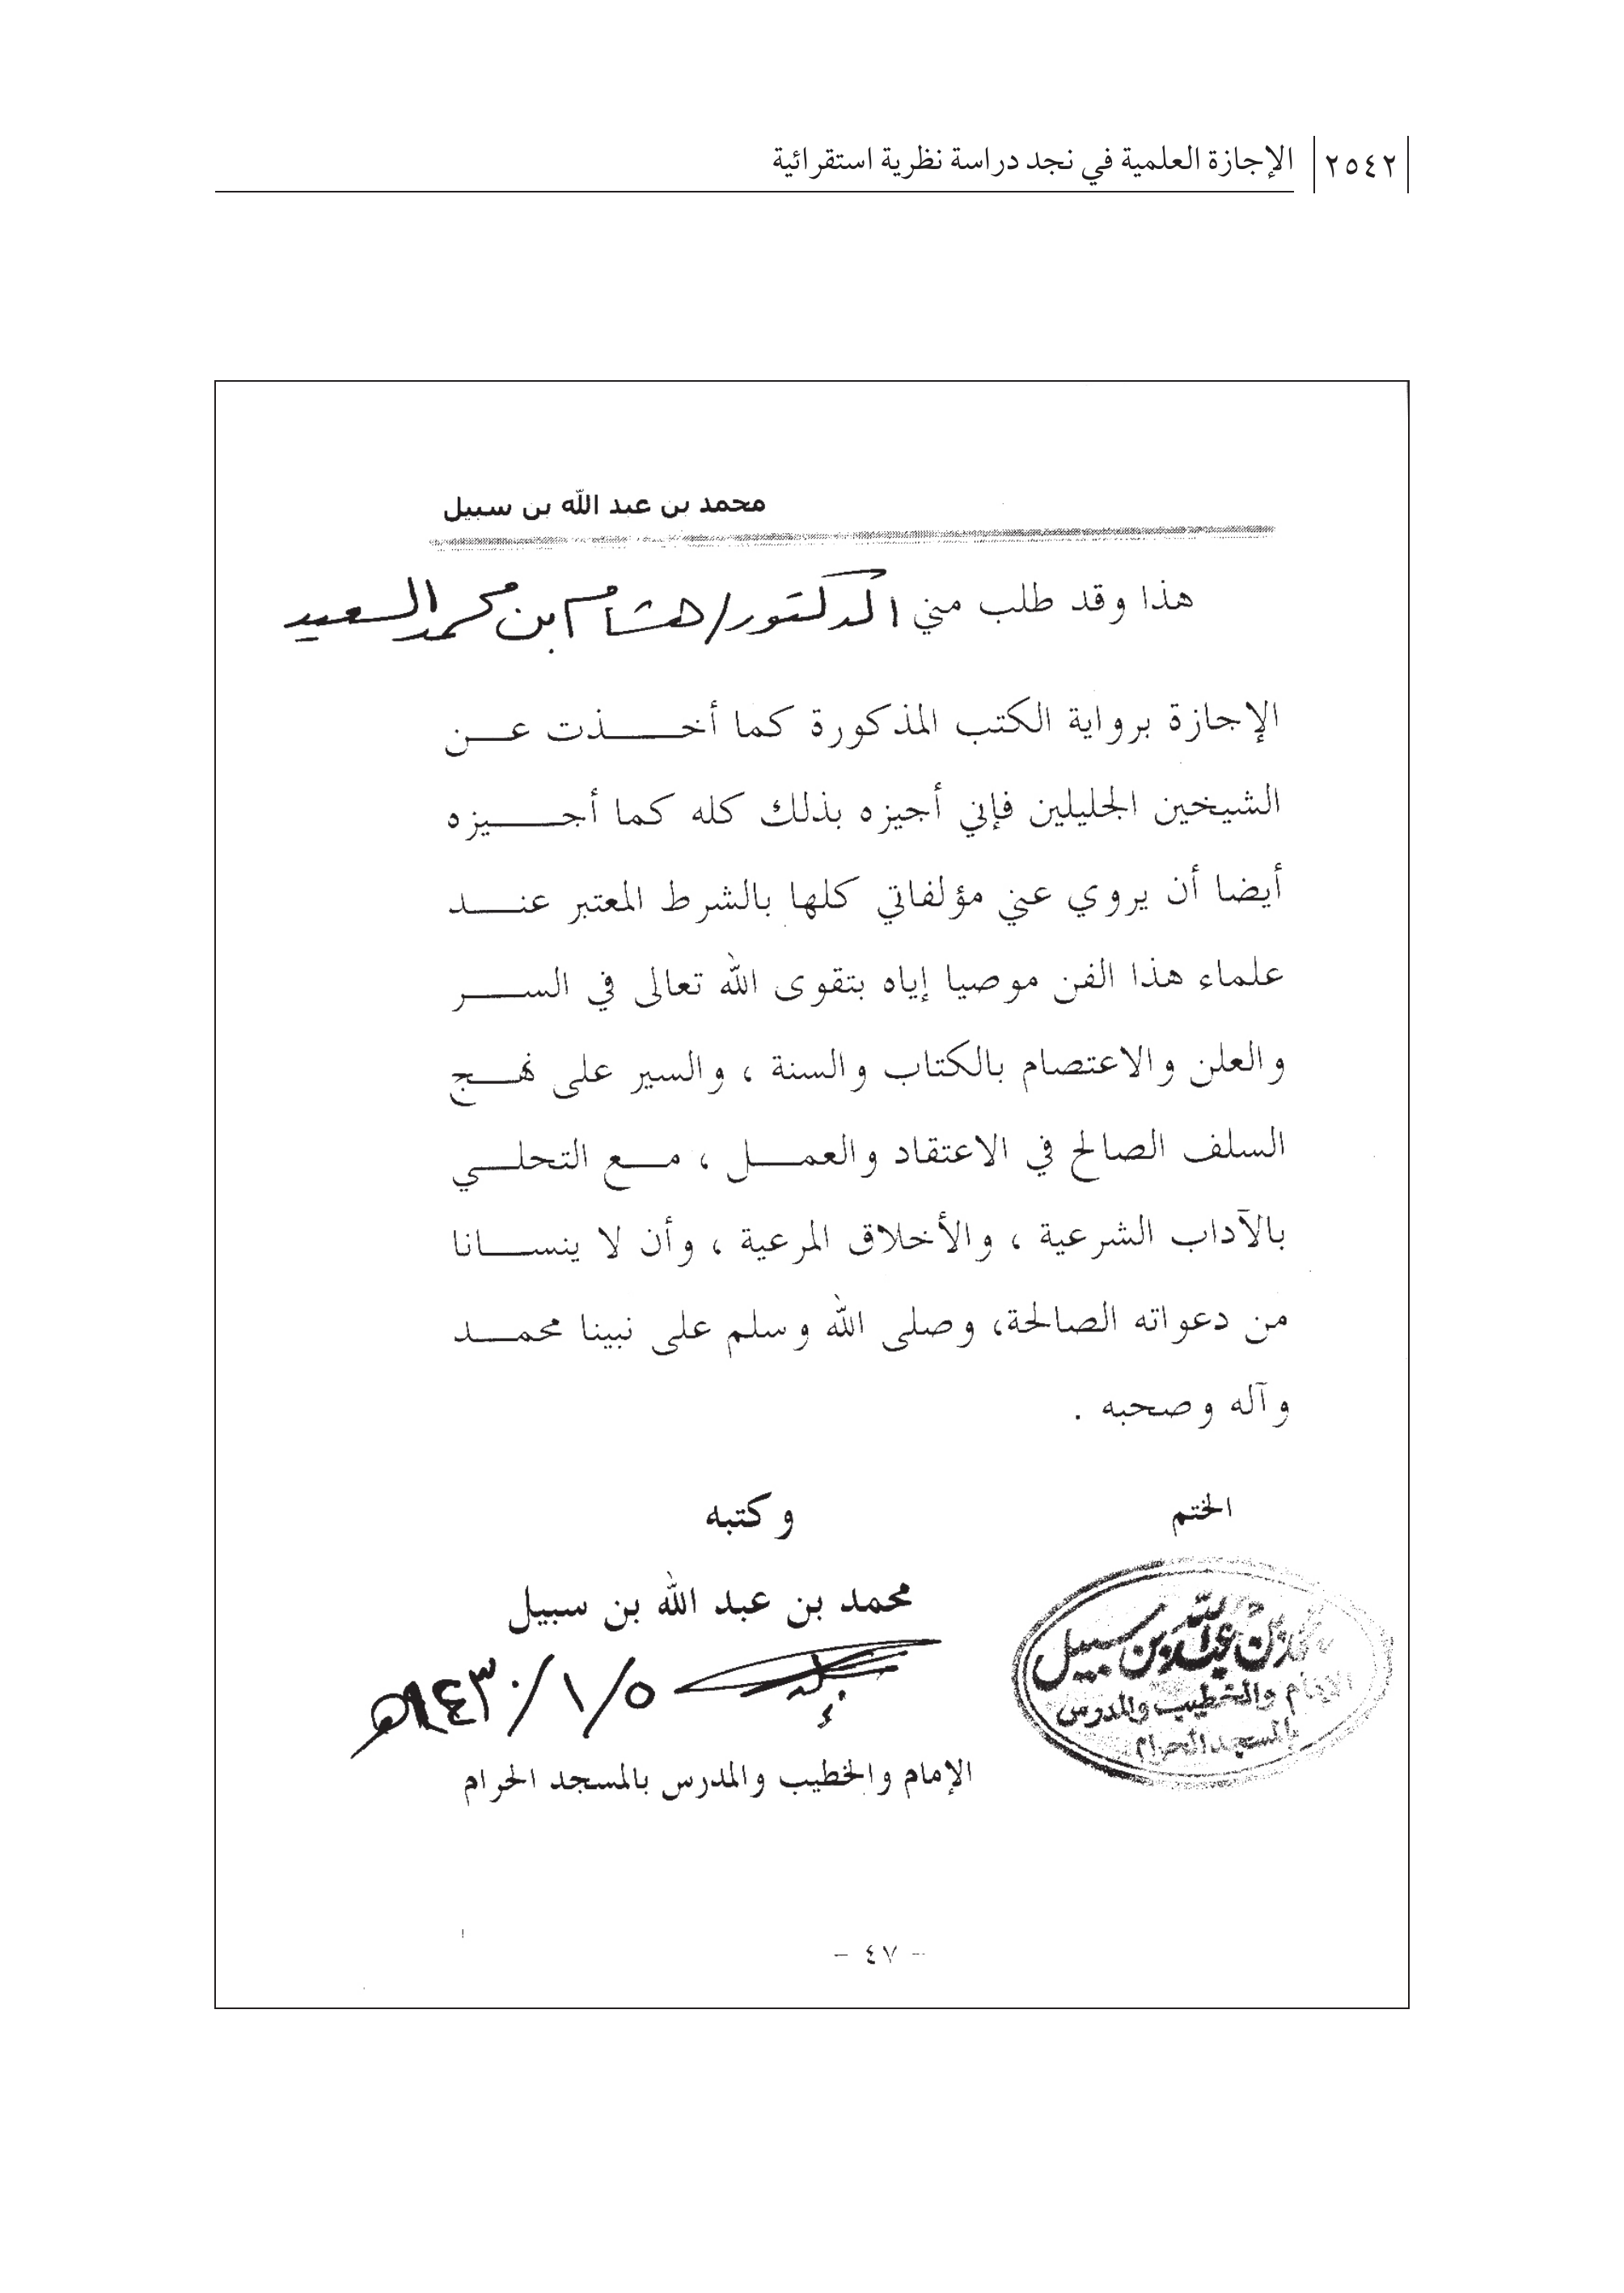 ٢٥٤٢ الإجازة العلمية في نجد دراسة نظرية استقرائية
محمد بن عبد الله بن سبيل
هذا وقد طلب مني الدكتور/هشام بن محمد السعيد
الإجازة برواية الكتب المذكورة كما أخذت عن
الشيخين الجليلين فإني أجيزه بذلك كله كما أجيزه
أيضا أن يروي عني مؤلفاتي كلها بالشرط المعتبر عند
علماء هذا الفن موصيا إياه بتقوى الله تعالى في السر
والعلن والاعتصام بالكتاب والسنة ، والسير على نهج
السلف الصالح في الاعتقاد والعمل ، مع التحلي
بالآداب الشرعية ، والأخلاق المرعية ، وأن لا ينسانا
من دعواته الصالحة، وصلى الله وسلم على نبينا محمد
وآله وصحبه .
الختم
وكتبه
محمد بن عبد الله بن سبيل
١٤٣٠/١/٥هـ
الإمام والخطيب والمدرس بالمسجد الحرام
محمد بن عبد الله بن سبيل
الإمام والخطيب والمدرس
بالمسجد الحرام
- ٤٧ -